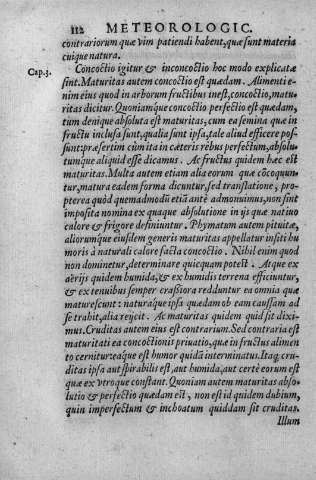 112 METEOROLOGIC.
contrariorum quæ vim patiendi habent, quæ sunt materia
cuique natura.
Cap.3. Concoctio igitur & inconcoctio hoc modo explicatæ
sint. Maturitas autem concoctio est quædam. Alimenti e-
nim eius quod in arborum fructibus inest, concoctio, matu-
ritas dicitur. Quoniamque concoctio perfectio est quædam,
tum denique absoluta est maturitas, cum ea semina quæ in
fructu inclusa sunt, qualia sunt ipsa, tale aliud efficere pos-
sunt: præsertim cùm ita in cæteris rebus perfectum, absolu-
tumque aliquid esse dicamus. Ac fructus quidem hæc est
maturitas. Multa autem etiam alia eorum quæ cōcoquun-
tur, matura eadem forma dicuntur, sed translatione, pro-
pterea quòd quemadmodū etiā antè admonuimus, non sint
imposita nomina ex quaque absolutione in ijs quæ natiuo
calore & frigore definiuntur. Phymatum autem pituitæ,
aliorumque eiusdem generis maturitas appellatur insiti hu
moris à naturali calore facta concoctio. Nihil enim quod
non dominetur, determinare quicquam potest. Atque ex
aërijs quidem humida, & ex humidis terrena efficiuntur,
& ex tenuibus semper crassiora redduntur ea omnia quæ
maturescunt: naturáque ipsa quædam ob eam caussam ad
se trahit, alia reijcit. Ac maturitas quidem quid sit dixi-
mus. Cruditas autem eius est contrarium. Sed contraria est
maturitati ea concoctionis priuatio, quæ in fructus alimen
to cernitur: eaque est humor quidā interminatus. Itaq; cru-
ditas ipsa aut spirabilis est, aut humida, aut certè eorum est
quæ ex vtroque constant. Quoniam autem maturitas abso-
lutio & perfectio quædam est, non est id quidem dubium,
quin imperfectum & inchoatum quiddam sit cruditas.
Illum